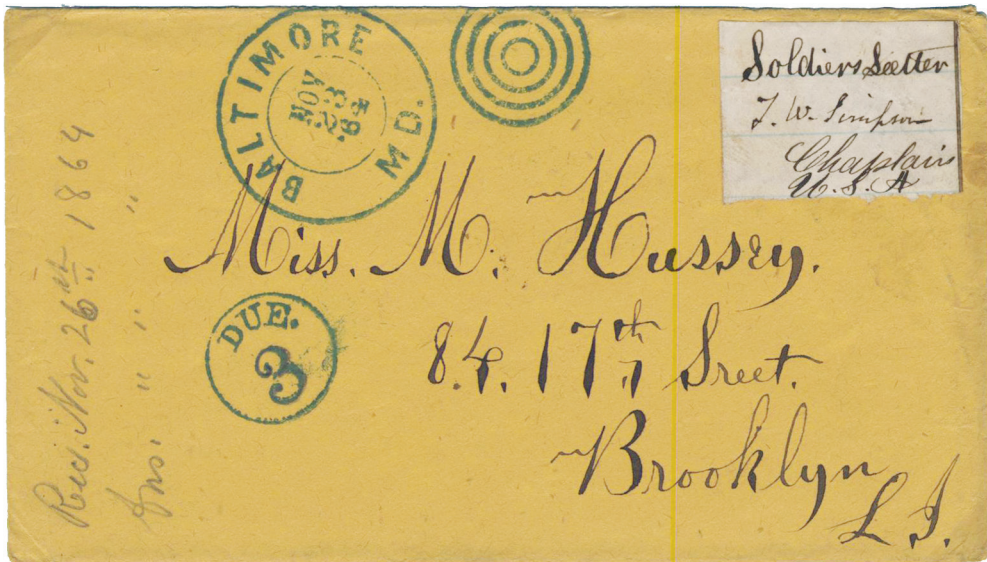 BALTIMORE MD.
NOV
23
'64
Soldiers Letter
T. W. Simpson
Chaplain
U. S. A
Miss. M. Hussey.
DUE.
3
84. 17th Sreet.
Brooklyn
L I.
Rec. Nov. 26th 1864
Ans. " " "